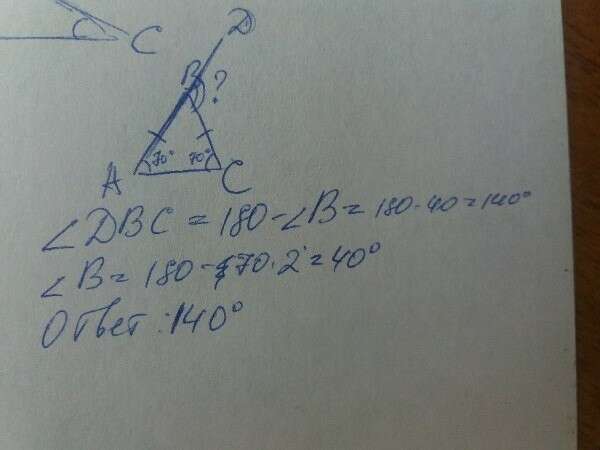 C C
D
B ?
70° 70°
A C
∠DBC = 180-∠B = 180-40=140°
∠B = 180-70·2=40°
Ответ: 140°